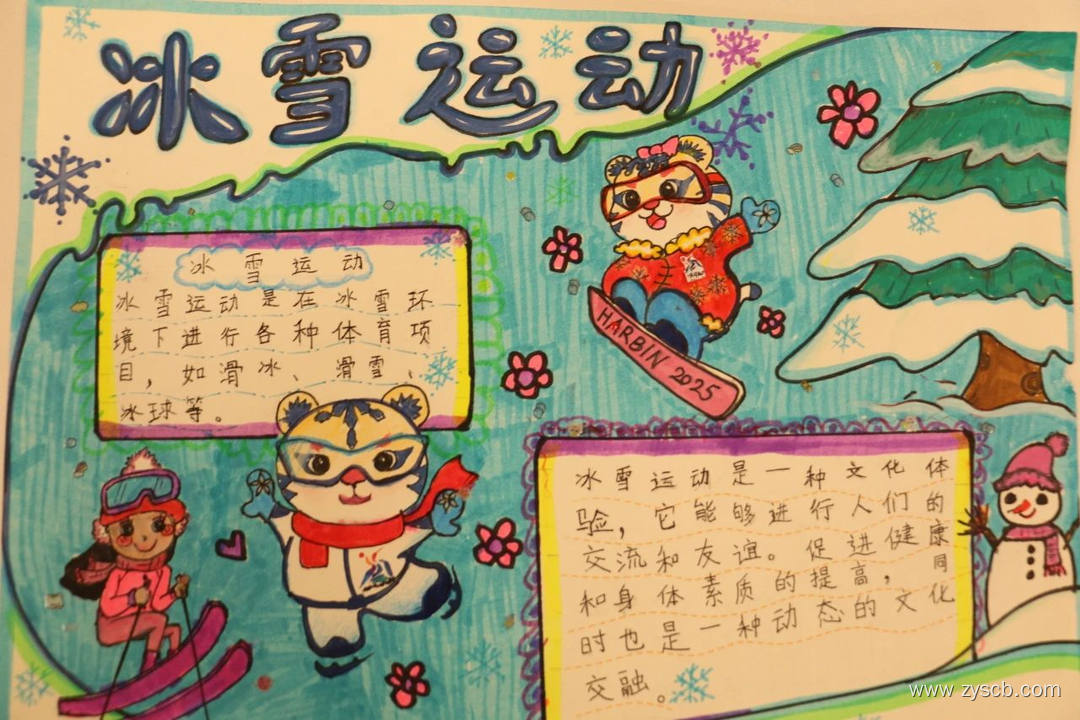 冰雪运动
冰雪运动
冰雪运动是在冰雪环
境下进行各种体育项
目，如滑冰、滑雪、
冰球等。
HARBIN 2025
冰雪运动是一种文化体
验，它能够进行人们的
交流和友谊。促进健康
和身体素质的提高，同
时也是一种动态的文化
交融。
www.zyscb.com